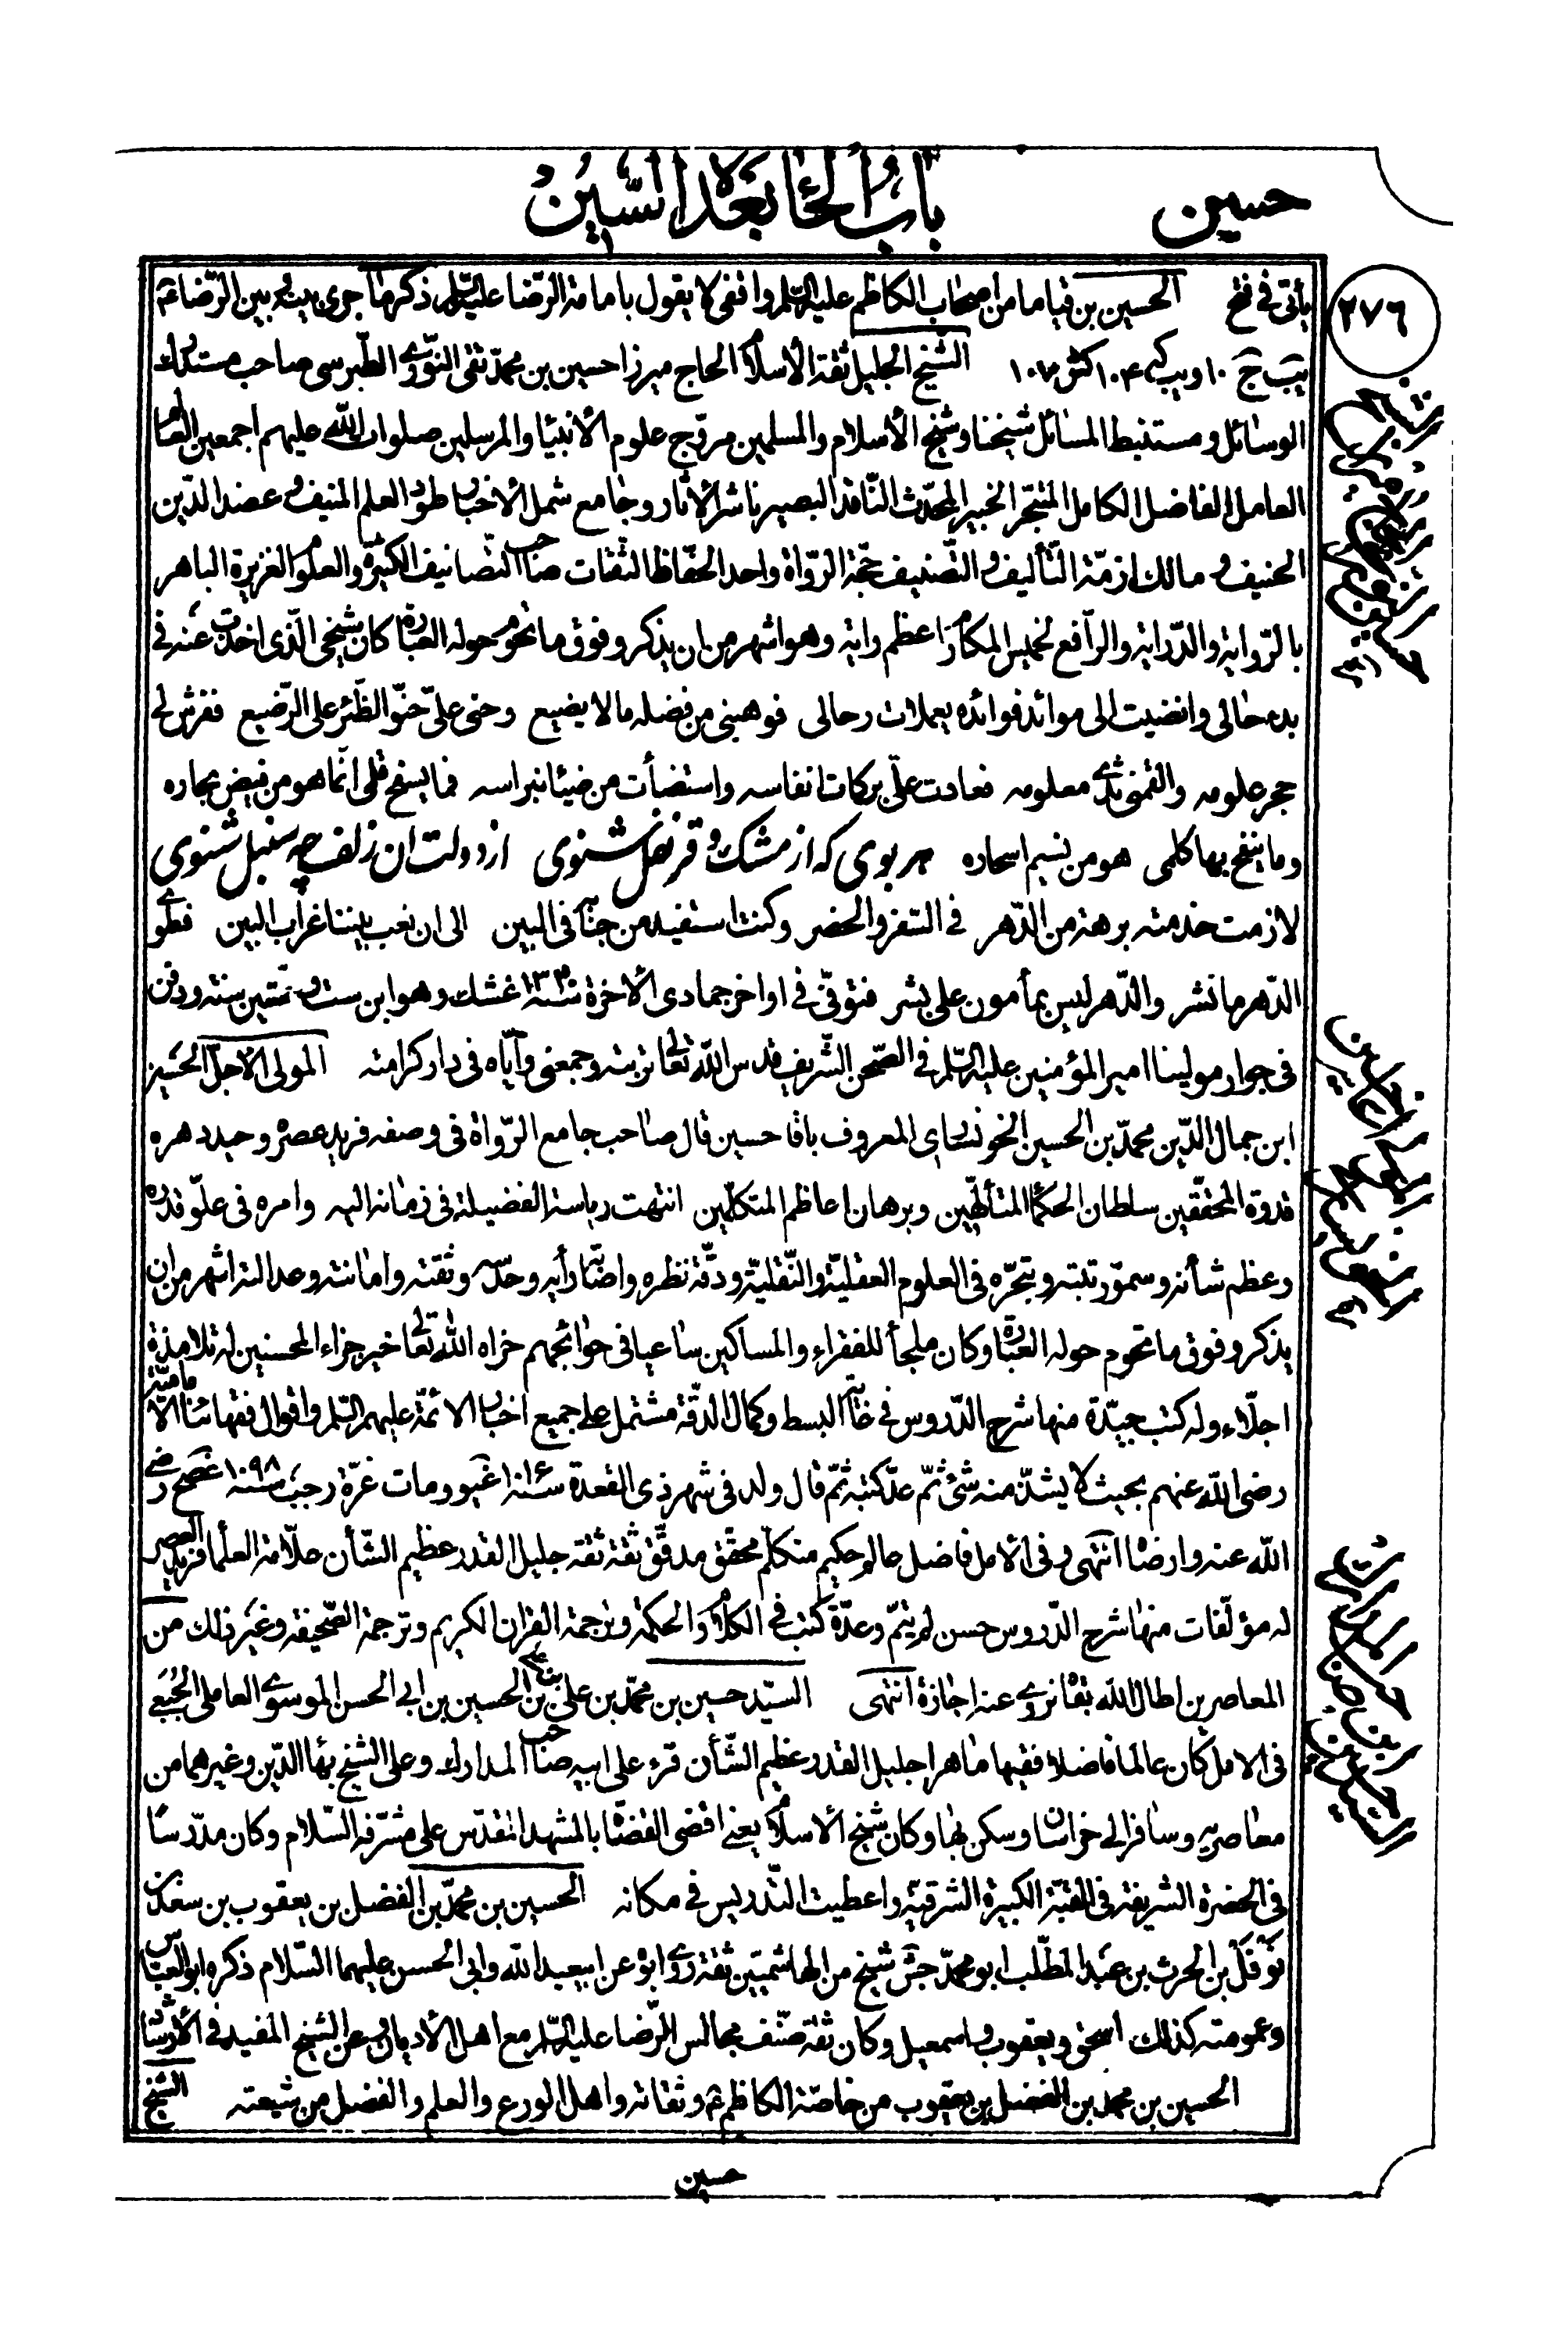 حسين
باب الحاء بعده السّين
٢٧٦
يأتى فى فتح الحسين بن قياما من اصحاب الكاظم عليه السّلم واقفى لا يقول بامامة الرّضا عليه السّلم ذكر ما جرى بينه وبين الرّضا عم
يب ج ١٠ ويب كب ١٠٤ كش ١٠٧ الشيخ الجليل ثقة الأسلام الحاج ميرزا حسين بن محمّد تقى النّورى الطّبرسى صاحب مستدرك
الوسائل ومستنبط المسائل شيخنا وشيخ الأسلام والمسلمين مروّج علوم الأنبياء والمرسلين صلوات الله عليهم اجمعين العالم
العامل الفاضل الكامل المتبحّر الخبير المحدّث النّاقد البصير ناشر الأثار وجامع شمل الأخبار طود العلم المنيف وعضد الدّين
الحنيف ومالك ازمّة التّأليف والتّصنيف حجّة الرّواة واحد الحفّاظ الثقات صاحب التّصانيف الكثيرة والعلوم الغزيرة الباهر
بالرّواية والدّراية والرّافع لخميس المكارم اعظم راية وهو اشهر من ان يذكر وفوق ما تحوم حوله العبارة كان شيخى الّذى اخذت عنه فى
بدء حالى وانضيت الى موائد فوائده يعملات رحالى فوهبنى من فضله مالا يضيع وحنى علىّ حنوّ الظّئر على الرّضيع ففرش لى
حجر علومه والقمنى ثدى معلومه فعادت علىّ بركات انفاسه واستضأت من ضياء نبراسه فما يسفح قلمى انّما هو من فيض بحاره
وما ينفح بها كلمى هو من نسيم اسحاره هر بوى كه از مشك و قرنفل شنوى از دولت ان زلف چه سنبل شنوى
لازمت خدمته برهة من الدّهر فى السّفر والحضر وكنت استفيد من جنابه فى البين الى ان نعب بيننا غراب البين فطوى
الدّهر ما نشر والدّهر ليس بمأمون على بشر فتوفّى فى اواخر جمادى الأخرة سنة ١٣٢٠ غشك وهو ابن ست و ستّين سنة ودفن
فى جوار مولينا امير المؤمنين عليه السّلم فى الصّحن الشّريف قدس الله تعالى تربته وجمعنى وايّاه فى دار كرامته المولى الأجلّ الحسين
ابن جمال الدّين محمّد بن الحسين الخونسارى المعروف باقا حسين قال صاحب جامع الرّواة فى وصفه فريد عصره وحيد دهره
قدوة المحقّقين سلطان الحكماء المتألّهين وبرهان اعاظم المتكلّمين انتهت رياسة الفضيلة فى زمانه اليه وامره فى علوّ قدره
وعظم شأنه وسموّ رتبته وتبحّره فى العلوم العقليّة والنّقليّة ودقّة نظره واصابة رأيه وحدسه وثقته وامانته وعدالته اشهر من ان
يذكر وفوق ما تحوم حوله العبارة وكان ملجأ للفقراء والمساكين ساعيا فى حوائجهم جزاه الله تعالى خير جزاء المحسنين له تلامذة
اجلّاء وله كتب جيّدة منها شرح الدّروس فى غاية البسط وكمال الدّقة مشتمل على جميع اخبار الائمّة عليهم السّلم واقوال فقهائنا الاماميّة
رضى الله عنهم بحيث لا يشذّ منه شئ ثمّ عدّ كتبه ثمّ قال ولد فى شهر ذى القعدة سنة ١٠١٦ غيو ومات غرّة رجب سنة ١٠٩٨ غصح رضى
الله عنه وارضاه انتهى و فى الامل فاضل عالم حكيم متكلّم محقّق مدقّق ثقة ثقة جليل القدر عظيم الشّأن علّامة العلماء فريد العصر
له مؤلّفات منها شرح الدّروس حسن لم يتمّ وعدّة كتب فى الكلام والحكمة وترجمة القران الكريم وترجمة الصّحيفة وغير ذلك من
المعاصرين اطال الله بقاه نروى عنه اجازة انتهى السيّد حسين بن محمّد بن على بن الحسين بن ابى الحسن الموسوى العاملى الجبعى
فى الامل كان عالما فاضلا فقيها ماهرا جليل القدر عظيم الشّأن قرء على ابيه صاحب المدارك وعلى الشيخ بهاء الدّين وغيرهما من
معاصريه وسافر الى خراسان وسكن بها وكان شيخ الأسلام يعنى اقضى القضاة بالمشهد المقدّس على مشرّفه السّلام وكان مدّرسا
فى الحضرة الشريفة فى القبّة الكبيرة الشرقيّة واعطيت التّدريس فى مكانه الحسين بن محمّد بن الفضل بن يعقوب بن سعد بن
نوفل بن الحرث بن عبد المطّلب ابو محمّد جش شيخ من الهاشميّين ثقة روى ابوه عن ابيعبد الله وابى الحسن عليهما السّلام ذكره ابو العباس
وعمومته كذلك اسحق ويعقوب واسمعيل وكان ثقة صنّف مجالس الرّضا عليه السّلم مع اهل الأديان وعن الشيخ المفيد فى الأرشاد
الحسين بن محمد بن الفضل بن يعقوب من خاصّة الكاظم ع وثقاته واهل الورع والعلم والفضل من شيعته الشيخ
حسين